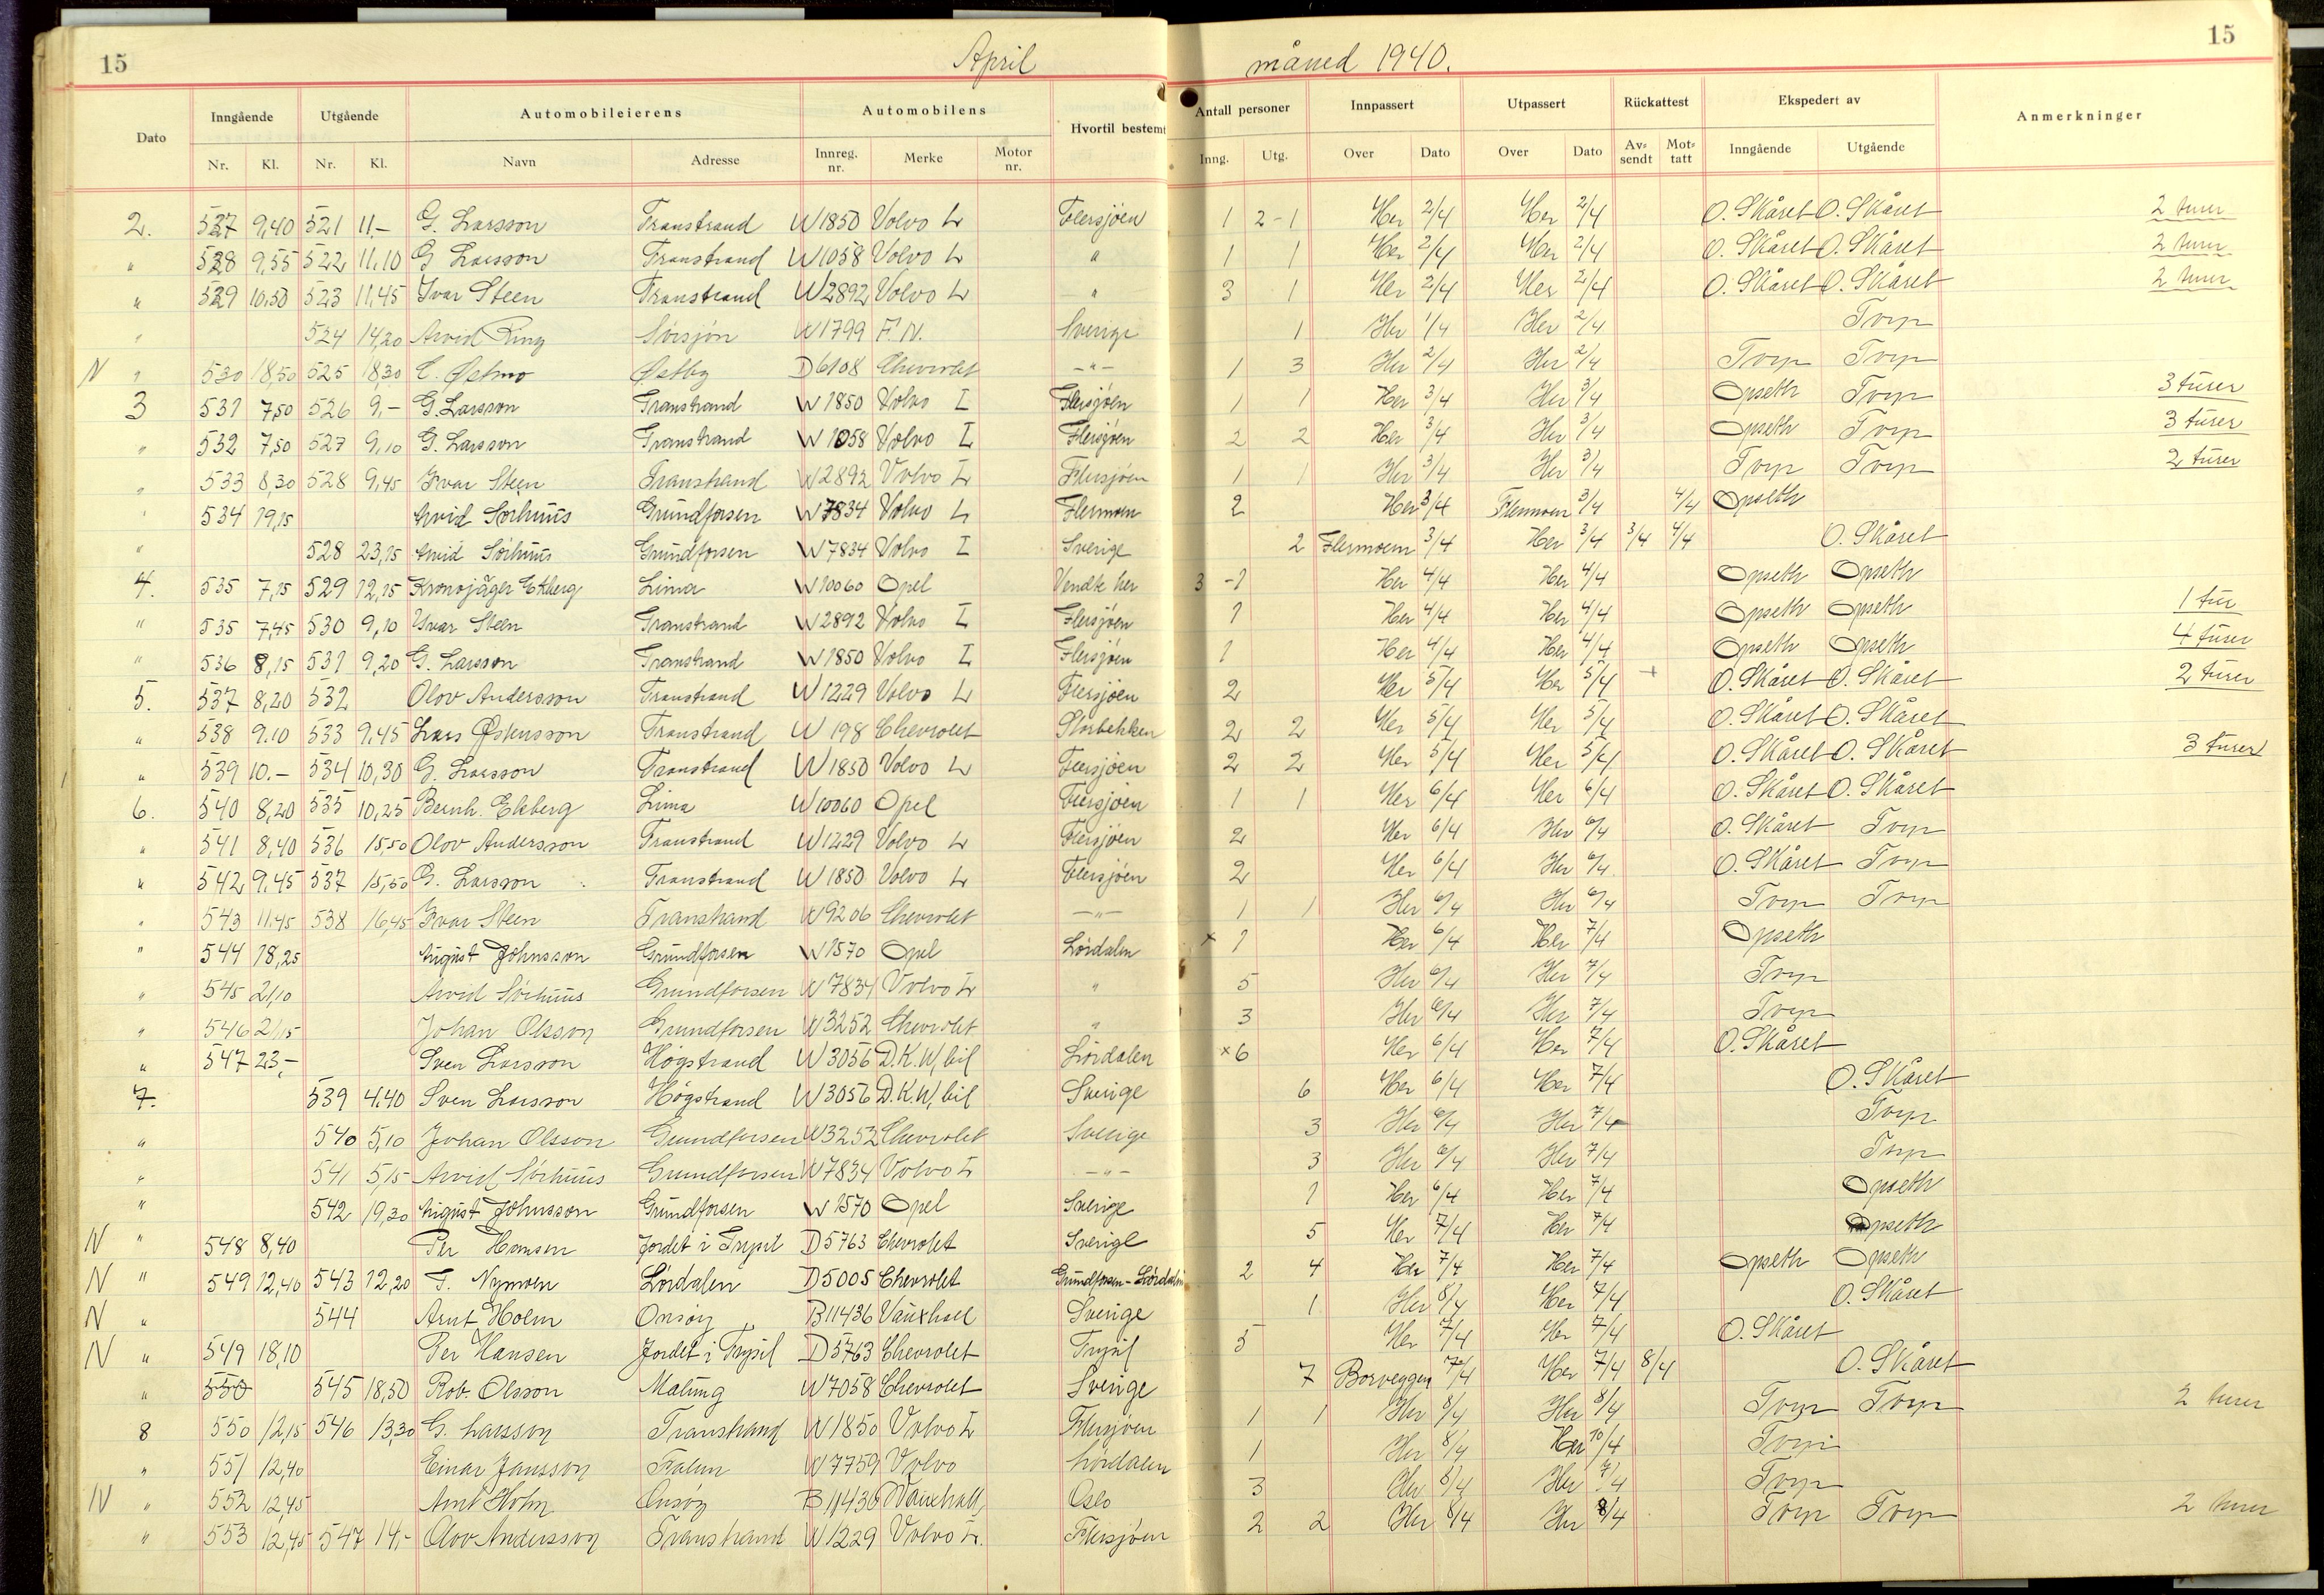 15 April måned 1940. 15
Dato Inngående Utgående Automobileierens Automobilens Hvortil bestemt Antall personer Innpassert Utpassert Rückattest Ekspedert av Anmerkninger
Nr. Kl. Nr. Kl. Navn Adresse Innreg. nr. Merke Motor nr. Inng. Utg. Over Dato Over Dato Av-sendt Mot-tatt Inngående Utgående
2. 527 9,40 521 11,- G. Larsson Transtrand W1850 Volvo L Flersjøen 1 2-1 Her 2/4 Her 2/4 O. Skåret O. Skåret 2 turer
" 528 9,55 522 11,10 G Larsson Transtrand W1058 Volvo L " 1 1 Her 2/4 Her 2/4 O. Skåret O. Skåret 2 turer
" 529 10,50 523 11,45 Ivar Steen Transtrand W2892 Volvo L " 3 1 Her 2/4 Her 2/4 O. Skåret O. Skåret 2 turer
" 524 14,20 Arvid Ring Sörsjön W1799 F.N. Sverige 1 Her 1/4 Her 2/4 Torp
N " 530 18,50 525 18,30 E. Østmo Østby D6108 Chevrolet -"- 1 3 Her 2/4 Her 2/4 Torp Torp
3 531 7,50 526 9,- G. Larsson Transtrand W1850 Volvo L Flersjöen 1 1 Her 3/4 Her 3/4 Opseth Torp 3 turer
" 532 7,50 527 9,10 G. Larsson Transtrand W1058 Volvo L Flersjöen 2 2 Her 3/4 Her 3/4 Opseth Torp 3 turer
" 533 8,30 528 9,45 Ivar Steen Transtrand W2892 Volvo L Flersjøen 1 1 Her 3/4 Her 3/4 Torp Torp 2 turer
" 534 19,15 Arvid Sörhuus Grundforsen W7834 Volvo L Flermoen 2 Her 3/4 Flermoen 3/4 4/4 Opseth
" 528 23,15 Arvid Sörhuus Grundforsen W7834 Volvo L Sverige 2 Flermoen 3/4 Her 3/4 3/4 4/4 O. Skåret
4. 535 7,15 529 12,15 Kronojäger Ekberg Lima W10060 Opel Vendte her 3 -1 Her 4/4 Her 4/4 Opseth Opseth
" 535 7,45 530 9,10 Ivar Steen Transtrand W2892 Volvo L Flersjöen 1 Her 4/4 Her 4/4 Opseth Opseth 1 tur
" 536 8,15 531 9,20 G. Larsson Transtrand W1850 Volvo L Flersjöen 1 Her 4/4 Her 4/4 Opseth Opseth 4 turer
5. 537 8,20 532 Olov Andersson Transtrand W1229 Volvo L Flersjøen 2 Her 5/4 Her 5/4 + O. Skåret O. Skåret 2 turer
" 538 9.10 533 9,45 Lars Østensson Transtrand W 198 Chevrolet 2 2 Her 5/4 Her 5/4 O. Skåret O. Skåret
" 539 10.- 534 10,30 G. Larsson Transtrand W1850 Volvo L Flersjøen 2 2 Her 5/4 Her 5/4 O. Skåret O. Skåret 3 turer
6. 540 8,20 535 10,25 Bernh. Ekberg Lima W10060 Opel Flersjøen 1 1 Her 6/4 Her 6/4 O. Skåret O. Skåret
" 541 8,40 536 15,50 Olov Andersson Transtrand W1229 Volvo L Flersjøen 2 Her 6/4 Her 6/4 O. Skåret Torp
" 542 9,45 537 15,50 G. Larsson Transtrand W1850 Volvo L Flersjøen 2 Her 6/4 Her 6/4 O. Skåret Torp
" 543 11.45 538 16,45 Ivar Steen Transtrand W9206 Chevrolet -"- 1 1 Her 6/4 Her 6/4 Torp Torp
" 544 18,25 August Johnsson Grundforsen W1570 Opel Lördalen × 1 Her 6/4 Her 7/4 Opseth
" 545 21,10 Arvid Sörhuus Grundforsen W7834 Volvo L " 5 Her 6/4 Her 7/4 Torp
" 546 21,15 Johan Olsson Grundforsen W3252 Chevrolet " 3 Her 6/4 Her 7/4 Torp
" 547 23,- Sven Larsson Högstrand W3056 D.K.W, bil Lördalen × 6 Her 6/4 Her 7/4 O. Skåret
7. 539 4,40 Sven Larsson Högstrand W3056 D.K.W, bil Sverige 6 Her 6/4 Her 7/4 O. Skåret
" 540 5,10 Johan Olsson Grundforsen W3252 Chevrolet Sverige 3 Her 6/4 Her 7/4 Torp
" 541 5,15 Arvid Sörhuus Grundforsen W7834 Volvo L -"- 3 Her 6/4 Her 7/4 Torp
" 542 19,30 August Johnsson Grundforsen W1570 Opel Sverige 1 Her 6/4 Her 7/4 Opseth
N " 548 8,40 Per Hansen Jordet i Trysil D5763 Chevrolet Sverige 5 Her 7/4 Her 7/4 Opseth
N " 549 12,40 543 12,20 T. Nymoen Lördalen D5005 Chevrolet Grundforsen-Lördalen 2 4 Her 7/4 Her 7/4 Opseth Opseth
N " 544 Arnt Holm Onsöy B11436 Vauxhall Sverige 1 Her 8/4 Her 7/4 O. Skåret
N " 549 18,10 Per Hansen Jordet i Trysil D5763 Chevrolet Trysil 5 Her 7/4 Her 7/4 O. Skåret
" 550 545 18,50 Rob. Olsson Malung W7058 Chevrolet Sverige 7 Borveggen 7/4 Her 7/4 8/4 O. Skåret
8 550 12,15 546 13,30 G. Larsson Transtrand W1850 Volvo L Flersjøen 1 1 Her 8/4 Her 8/4 Torp Torp 2 turer
" 551 12,40 Einar Jansson Falun W7759 Volvo Lördalen 1 Her 8/4 Her 10/4 Torp
N " 552 12,45 Arnt Holm Onsöy B11436 Vauxhall Oslo 3 Her 8/4 Her 7/4 Torp
" 553 12,45 547 14,- Olov Andersson Transtrand W1229 Volvo L. Flersjøen 2 2 Her 8/4 Her 8/4 Torp Torp 2 turer